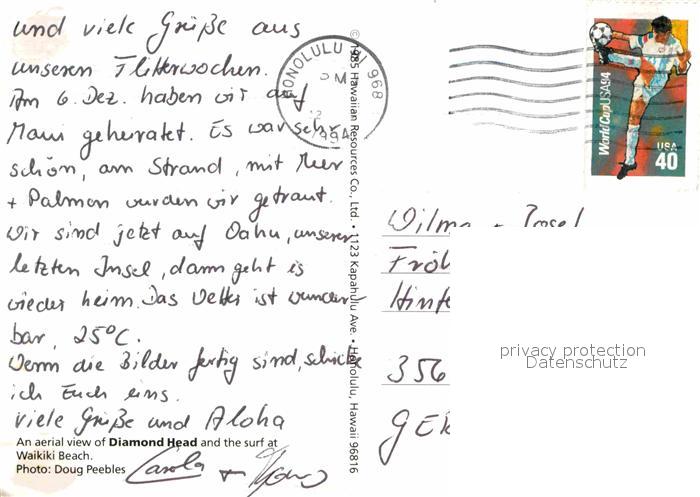 und viele Grüße aus
unseren Flitterwochen.
Am 6. Dez. haben wir auf
Maui geheiratet. Es war sehr
schön, am Strand, mit Meer
+ Palmen wurden wir getraut.
Wir sind jetzt auf Oahu, unserer
letzten Insel, dann geht es
wieder heim. Das Wetter ist wunder-
bar, 25°C.
Wenn die Bilder fertig sind, schicke
ich Euch eins.
Viele Grüße und Aloha
Carola +
An aerial view of Diamond Head and the surf at
Waikiki Beach.
Photo: Doug Peebles
© 1985 Hawaiian Resources Co., Ltd. • 1123 Kapahulu Ave. • Honolulu, Hawaii 96816
HONOLULU HI 968
PM
1994
World Cup USA94
USA
40
Wilma + Josef
Fröh
Hinte
356
GER
privacy protection
Datenschutz